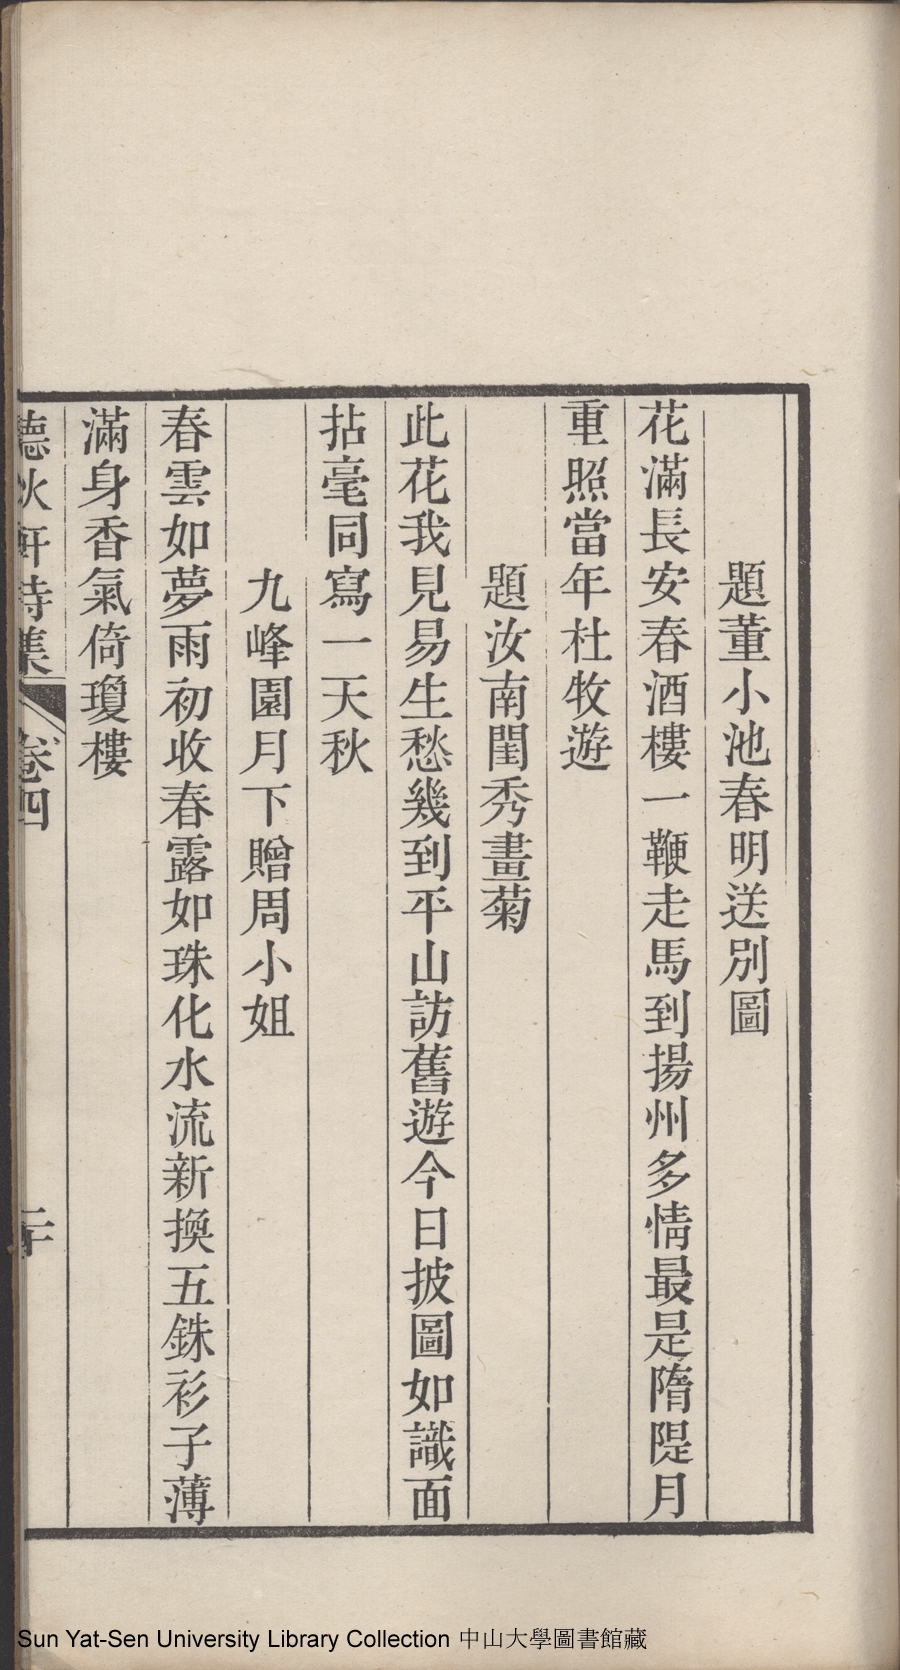 題董小池春明送別圖
花滿長安春酒樓一鞭走馬到揚州多情最是隋隄月
重照當年杜牧遊
題汝南閨秀畫菊
此花我見易生愁幾到平山訪舊遊今日披圖如識面
拈毫同寫一天秋
九峰園月下贈周小姐
春雲如夢雨初收春露如珠化水流新換五銖衫子薄
滿身香氣倚瓊樓
聽秋軒詩集
卷四
二十
Sun Yat-Sen University Library Collection 中山大學圖書館藏